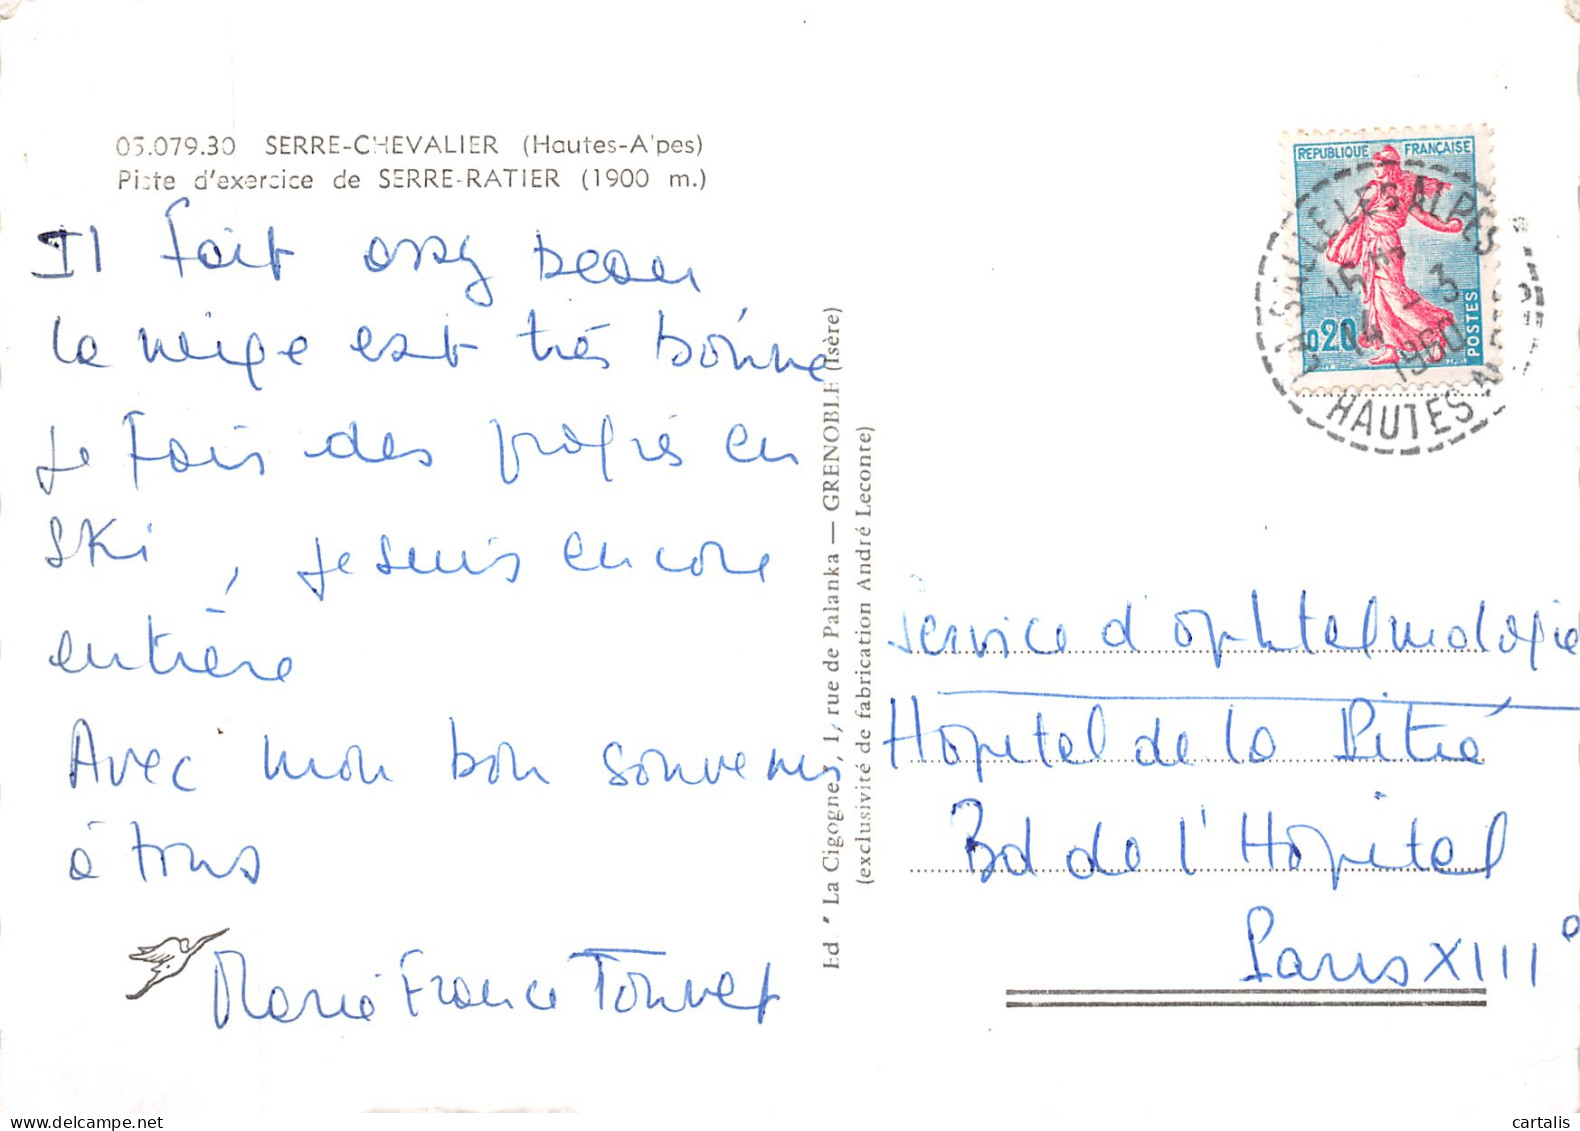 05.079.30 SERRE-CHEVALIER (Hautes-Alpes)
Piste d'exercice de SERRE-RATIER (1900 m.)
Il fait assez beau
la neige est très bonne
je fais des progrès en
ski, je suis encore
entière
Avec mon bon souvenir
à tous
Marie France Tonnet
Ed. "La Cigogne", 1, rue de Palanka — GRENOBLE (Isère)
(exclusivité de fabrication André Leconte)
REPUBLIQUE FRANÇAISE
0,20
POSTES
LA SALLE LES ALPES
15H
14 - 3
1960
HAUTES ALPES
Service d'ophtalmologie
Hôpital de la Pitié
Bd de l'Hôpital
Paris XIII°
www.delcampe.net
cartalis